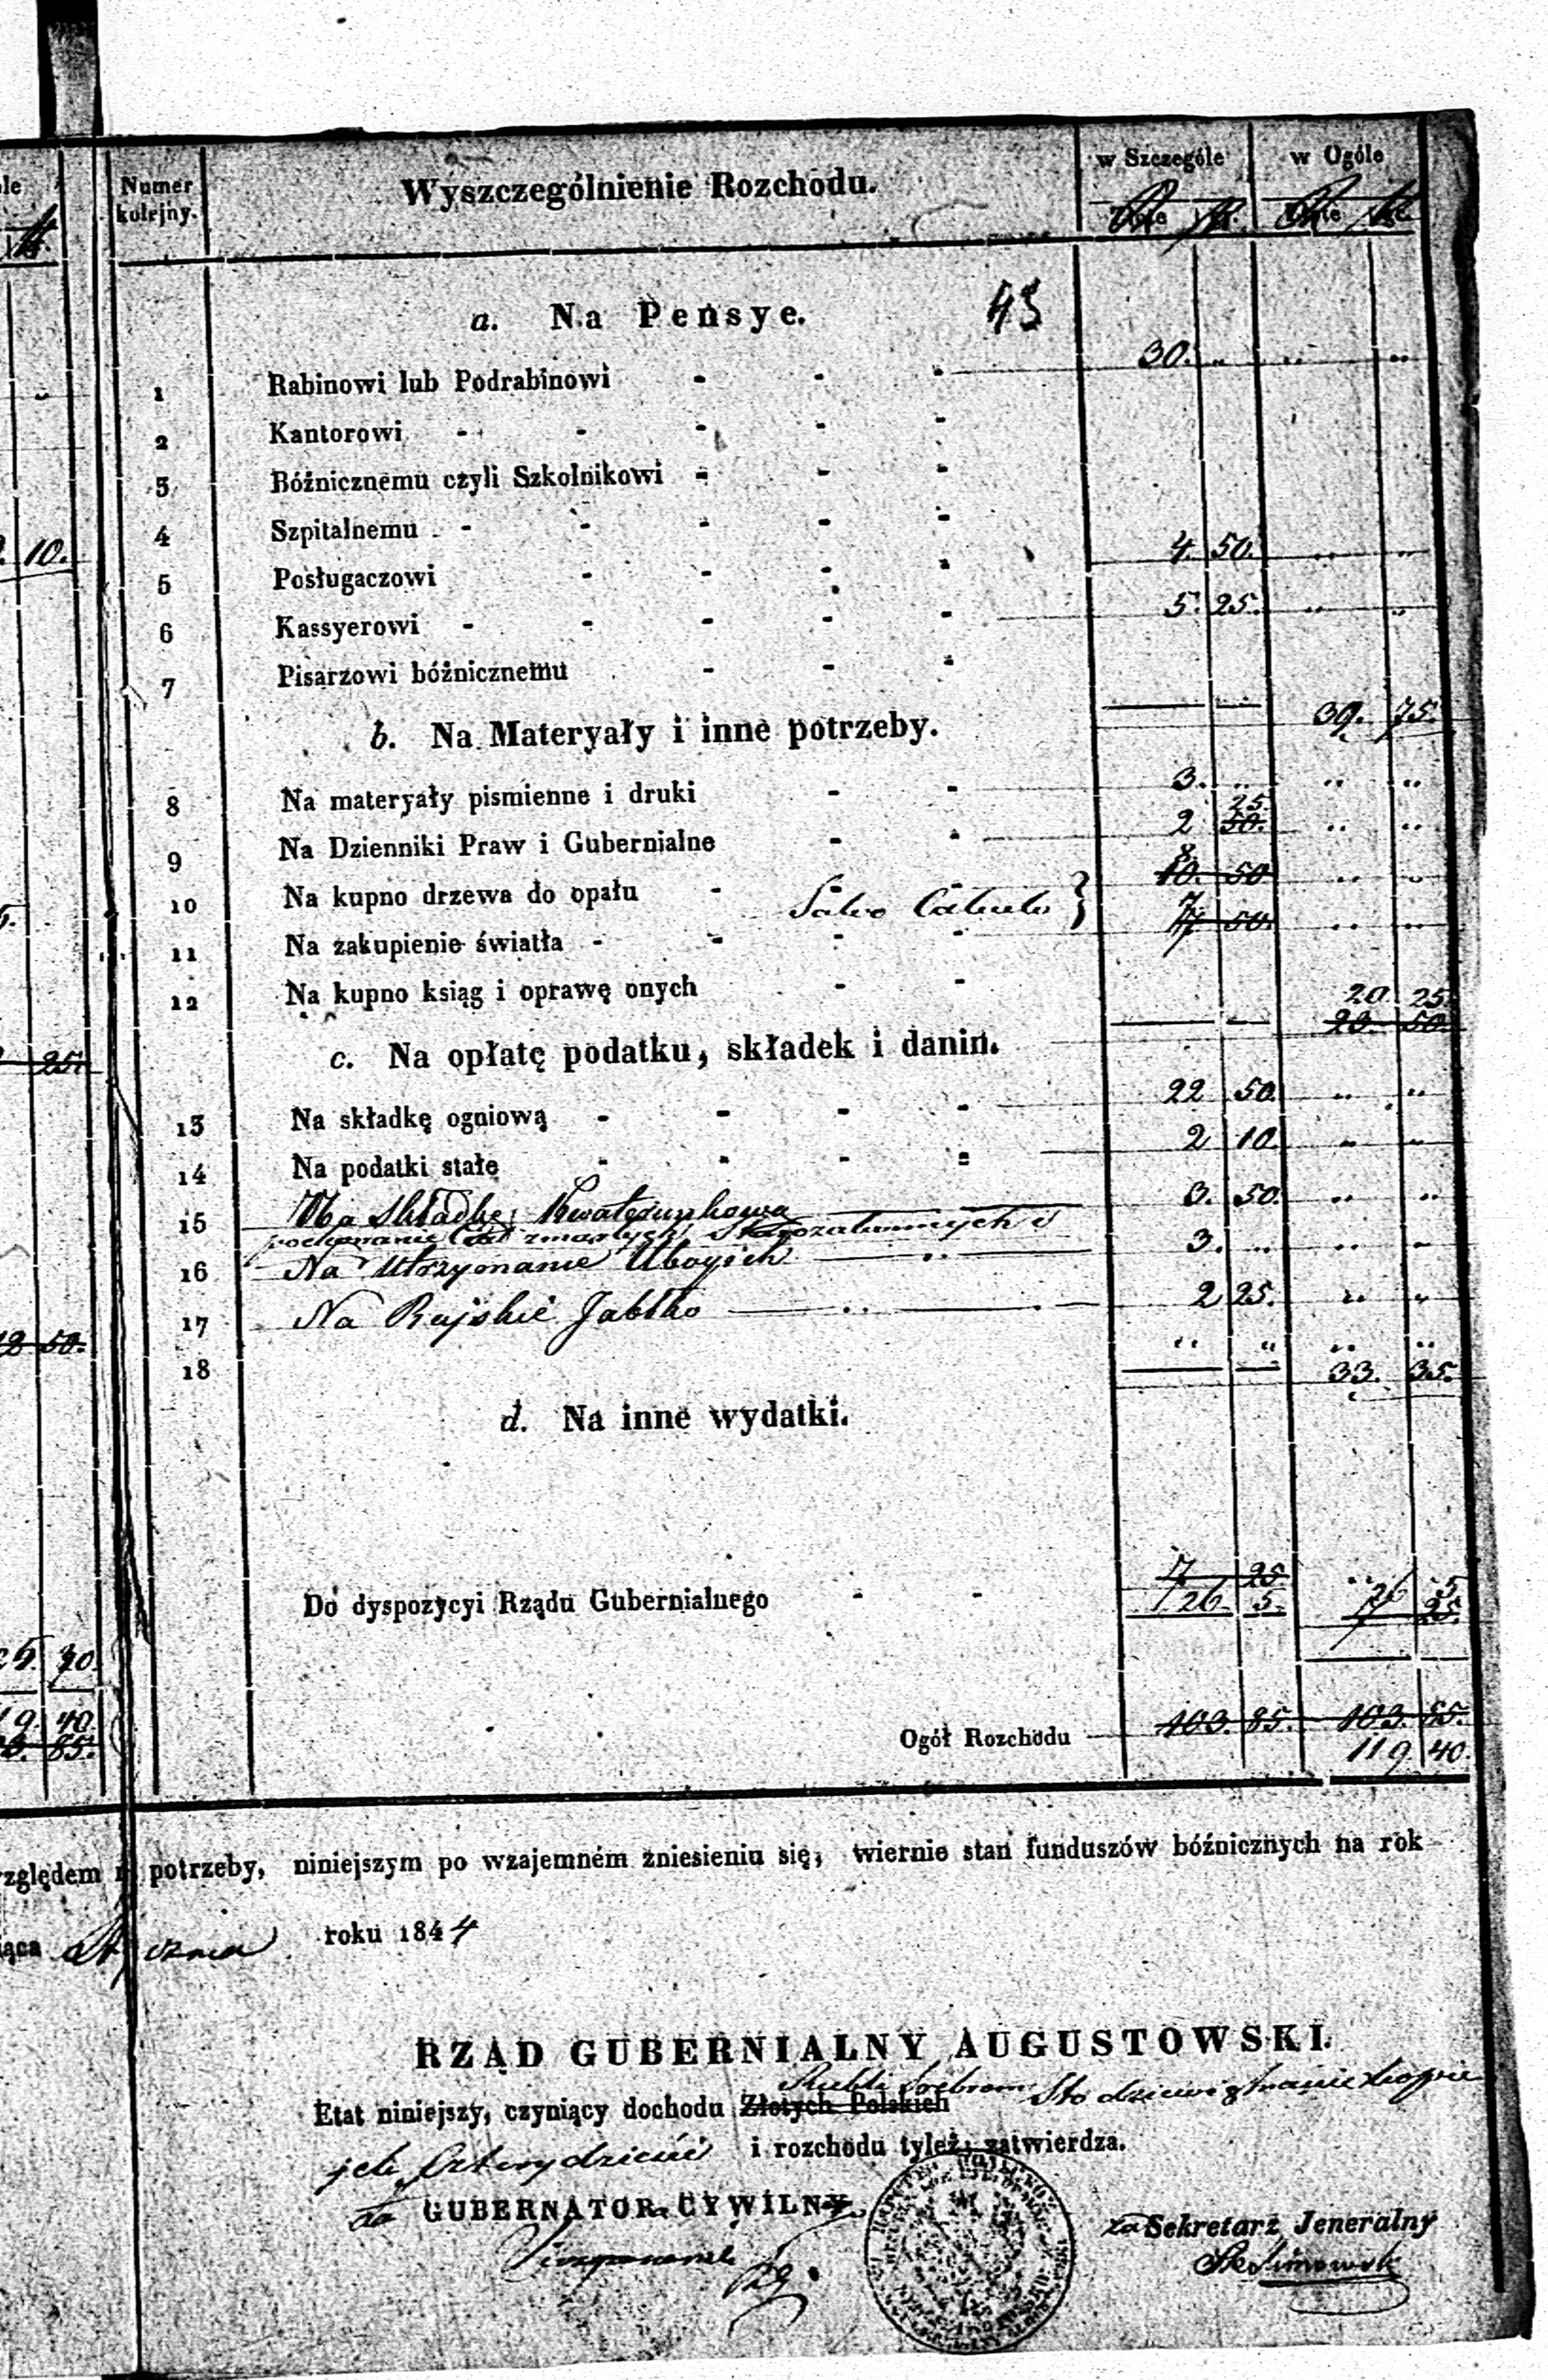 Numer kolejny. Wyszczególnienie Rozchodu. w Szczególe w Ogóle
a. Na Pensye. 43
1 Rabinowi lub Podrabinowi - - - 30. „ „ „
2 Kantorowi - - - - -
3 Bóżnicznemu czyli Szkolnikowi - - -
4 Szpitalnemu - - - - -
5 Posługaczowi - - - - 4. 50. „ „
6 Kassyerowi - - - - - 5. 25. „ „
7 Pisarzowi bóżnicznemu - - -
39. 75.
b. Na Materyały i inne potrzeby.
8 Na materyały pismienne i druki - - 3. „ „ „
9 Na Dzienniki Praw i Gubernialne - - 2 25. 50. „ „
10 Na kupno drzewa do opału - 8. 10. 50 „ „
Salvo Calculo }
11 Na zakupienie światła - - - - 7 7 50. „ „
12 Na kupno ksiąg i oprawę onych - -
20. 25.
23. 50.
c. Na opłatę podatku, składek i danin.
13 Na składkę ogniową - - - - 22 50. „ „
14 Na podatki stałe - - - - 2 10. „ „
15 Na Składkę Kwaterunkową 3. 50. „ „
pochowanie Ciał zmarłych Starozakonnych i
16 Na Utrzymanie Ubogich 3. „ „ „
17 Na Rajskie Jabłko 2 25. „ „
18 „ „ „ „
33. 35.
d. Na inne wydatki.
7 25
Do dyspozycyi Rządu Gubernialnego - - 26. 5. 26 5
7 25.
Ogół Rozchodu 103. 85. 103. 85.
119 40.
potrzeby, niniejszym po wzajemném zniesieniu się, wiernie stan funduszów bóźnicznych na rok
Stycznia roku 1844
RZĄD GUBERNIALNY AUGUSTOWSKI.
Rubli Srebrem Sto dziewiętnaście kopie
Etat niniejszy, czyniący dochodu Złotych Polskich
jek Czterydzieści i rozchodu tyleż, zatwierdza.
za GUBERNATOR CYWILNY
za Sekretarz Jeneralny